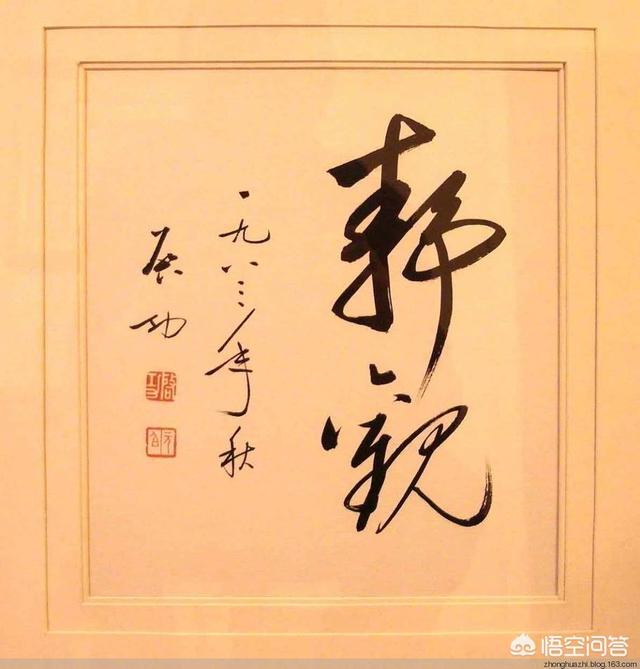 静觀
一九八三年秋
启功
启功
元白
悟空问答
zhonghuazhi.blog.163.com